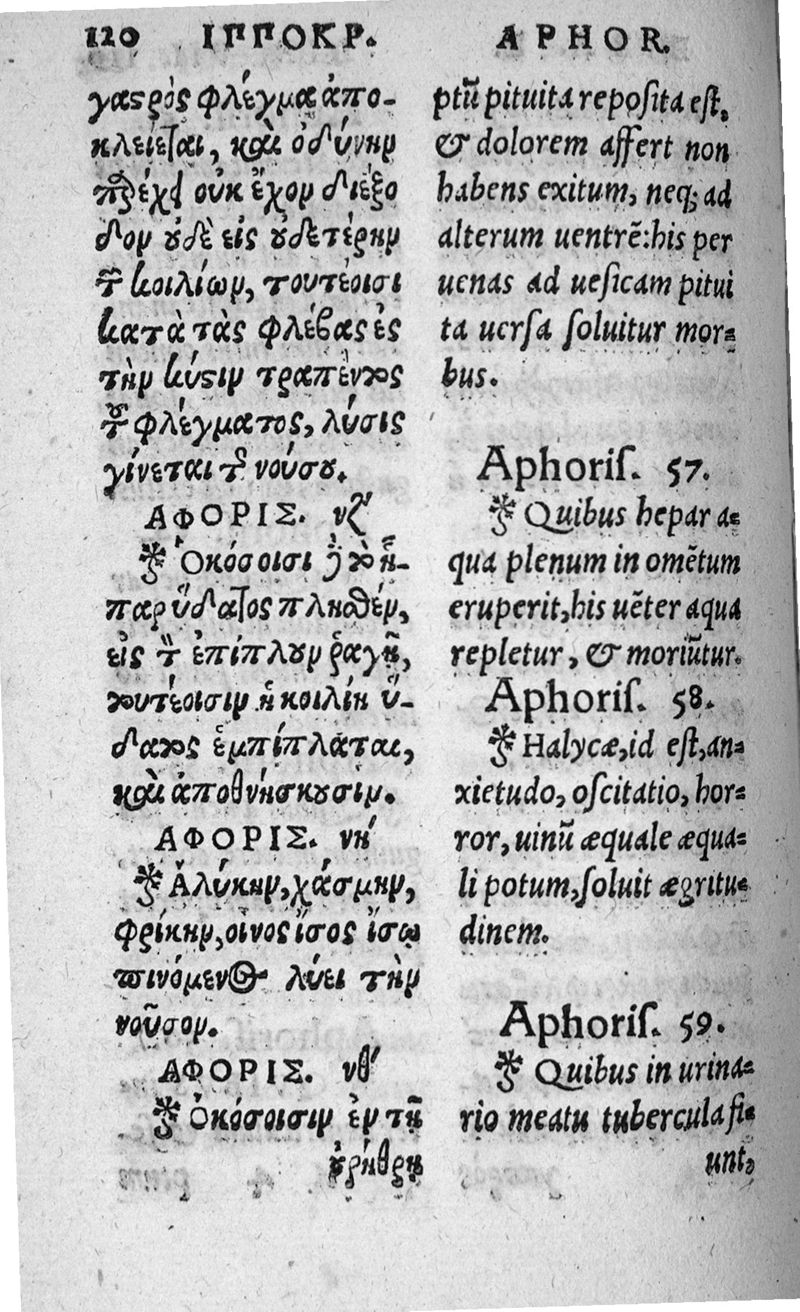 120 ΙΠΠΟΚΡ. APHOR.
γαϛρὸς φλέγμα ἀπο-
κλείεται, καὶ ὀδύνην
παρέχει οὐκ ἔχον διέξο
δον ȣ̓δὲ εἰς ȣ̓δετέρην
τῶν κοιλίων, τουτέοισι
κατὰ τὰς φλέβας ἐς
τὴν κύϛιν τραπέντος
τοῦ φλέγματος, λύσις
γίνεται τῆς νούσȣ.
ΑΦΟΡΙΣ. νζʹ
Ὁκόσοισι τὸ ἧ-
παρ ὕδατος πληθὲν,
εἰς τὸ ἐπίπλȣν ῥαγῇ,
τουτέοισιν ἡ κοιλίη ὕ-
δατος ἐμπίπλαται,
καὶ ἀποθνήσκȣσιν.
ΑΦΟΡΙΣ. νηʹ
Ἀλύκην, χάσμην,
φρίκην, οἶνος ἴσος ἴσῳ
πινόμενος λύει τὴν
νοῦσον.
ΑΦΟΡΙΣ. νθʹ
Ὁκόσοισιν ἐν τῇ
ȣ̓ρήθρῃ
ptū pituita reposita est,
& dolorem affert non
habens exitum, neq; ad
alterum uentrē: his per
uenas ad uesicam pitui
ta uersa soluitur mor-
bus.
Aphoris. 57.
Quibus hepar a-
qua plenum in omētum
eruperit, his uēter aqua
repletur, & moriūtur.
Aphoris. 58.
Halycæ, id est, an-
xietudo, oscitatio, hor-
ror, uinū æquale æqua-
li potum, soluit ægritu-
dinem.
Aphoris. 59.
Quibus in urina-
rio meatu tubercula fi-
unt,